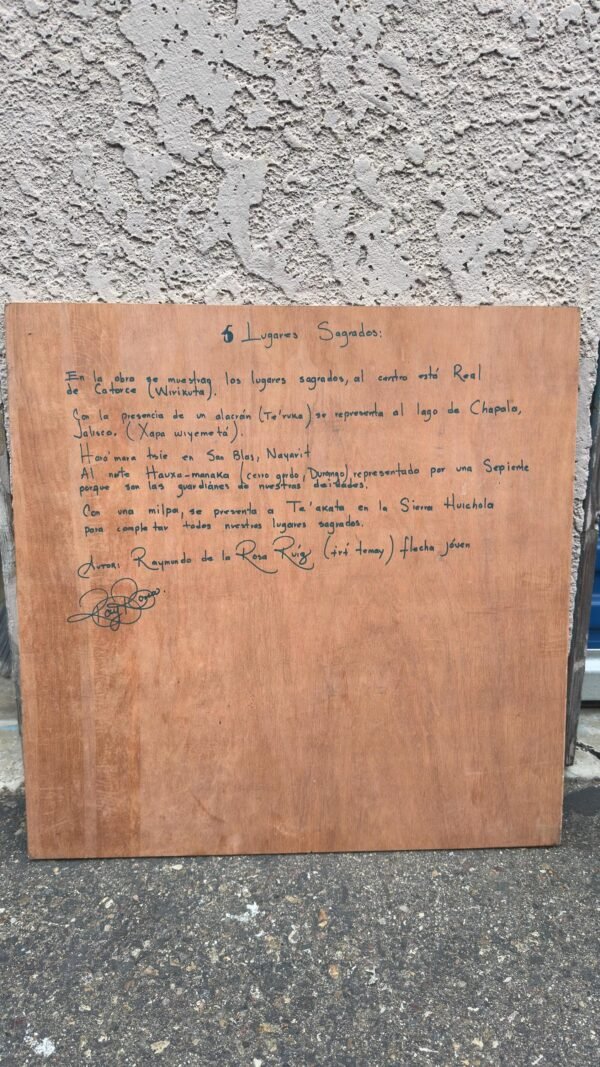 5 Lugares Sagrados:
En la obra se muestran los lugares sagrados, al centro está Real
de Catorce (Wirikuta).
Con la presencia de un alacrán (Te'ruka) se representa al lago de Chapala,
Jalisco. (Xapa wiyemetá).
Hara'mara tsie en San Blas, Nayarit
Al norte Hauxa-manaka (cerro gordo, Durango) representado por una Sepiente
porque son las guardiánes de nuestras deidades.
Con una milpa, se presenta a Te'akata en la Sierra Huichola
para completar todos nuestros lugares sagrados.
Autor: Raymundo de la Rosa Ruíz (irí temay) flecha jóven
Ray Rosa.